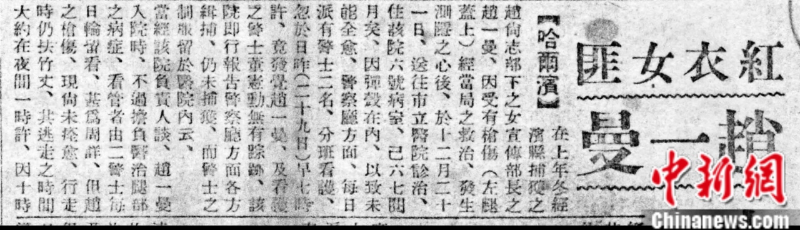 紅衣女匪
趙一曼
【哈爾濱】
在上年冬經
濱縣捕獲之
趙尙志部下之女宣傳部長之
趙一曼、因受有槍傷(左腿
蓋上)經當局之救治、發生
測隱之心後、於十二月二十
一日、送往市立醫院診治、
住該院六號病室、已六七閱
月矣、因彈殼在內、以致未
能全愈、警察廳方面、每日
派有警士二名、分班看護、
忽於日昨(二十九日)早七時
許、竟發覺趙一曼、及看護
之警士董憲動無有踪跡、該
院即行報告警察廳方面各方
緝捕、仍未捕獲、而警士之
制服留於醫院內云、
當經該院負責人談、趙一曼
入院時、不過擔負醫治腿部
之病症、看管者由二警士每
日輪留看、甚爲周詳、但趙
之槍傷、現尙未痊愈、行走
時仍扶竹丈、共逃走之時間
大約在夜間一時許、因十時
中新網
Chinanews.com